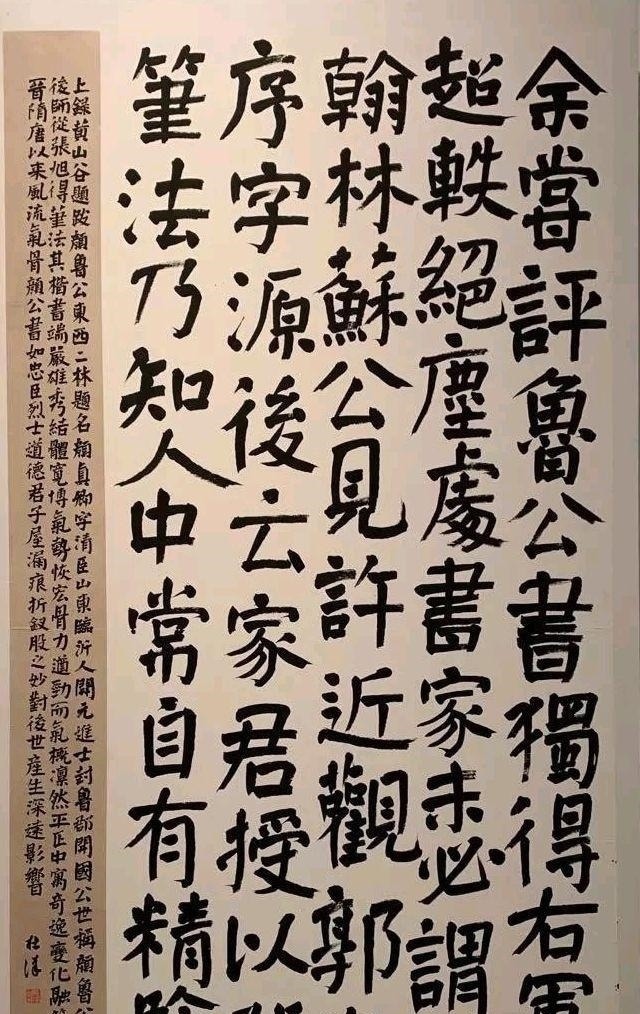 余嘗評魯公書獨得右軍
超軼絕塵處書家未必謂
翰林蘇公見許近觀郭
序字源後云家君授以
筆法乃知人中常自有精
上錄黃山谷題跋顏魯公東西二林題名顏真卿字清臣山東臨沂人開元進士封魯郡開國公世稱顏魯公
後師從張旭得筆法其楷書端嚴雄秀結體寬博氣勢恢宏骨力遒勁而氣概凜然平正中寓奇逸變化融
晉隋唐以來風流氣骨顏公書如忠臣烈士道德君子屋漏痕折釵股之妙對後世產生深遠影響